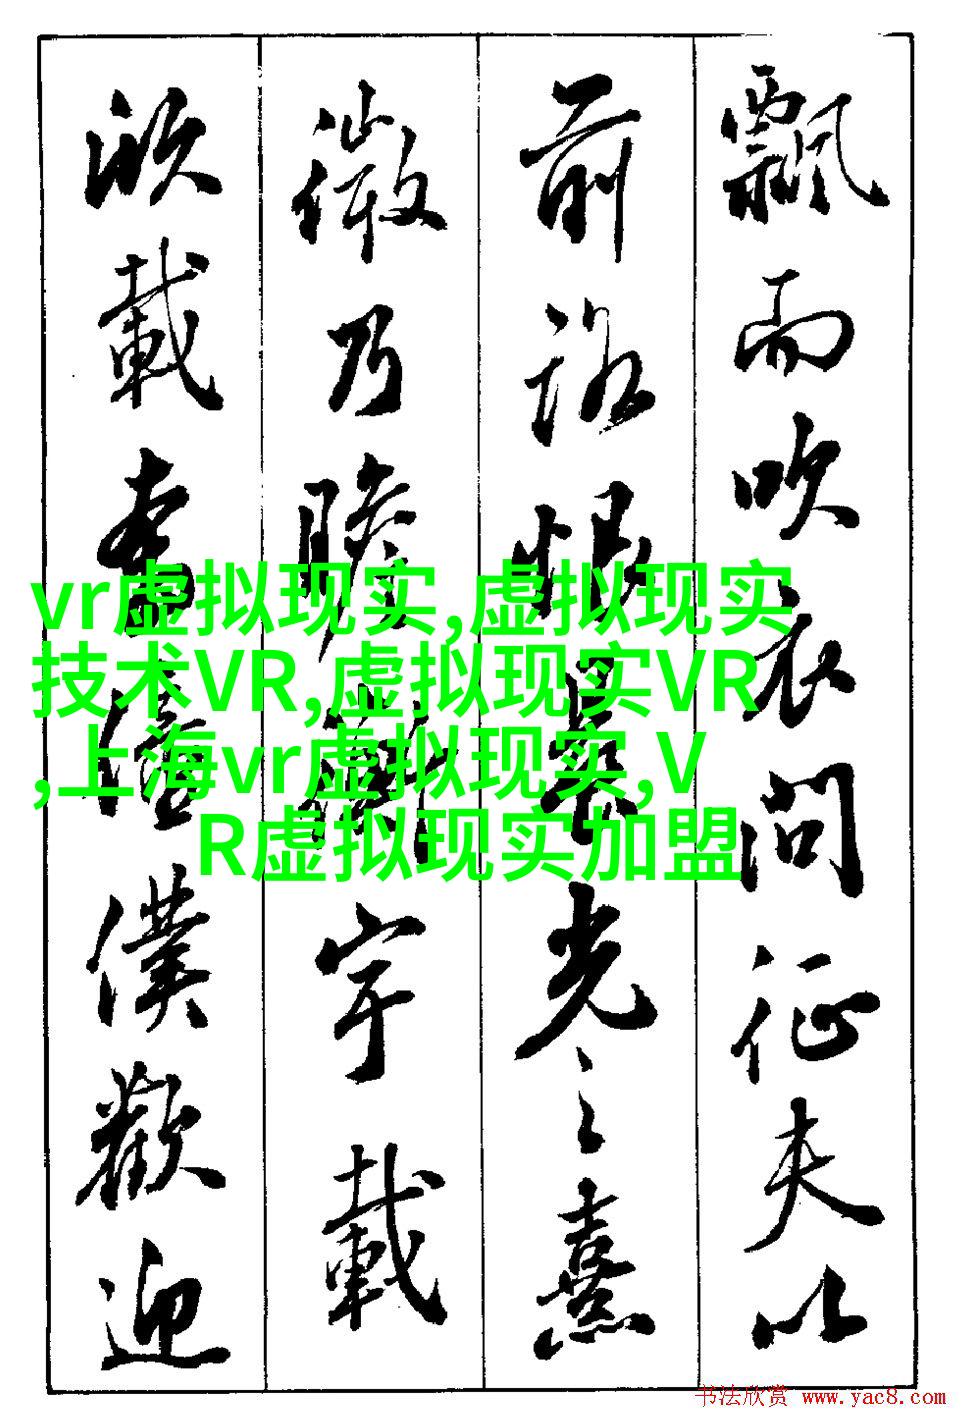 飄而吹衣問征夫以
前路恨晨光之熹
微乃瞻衡宇載
欣載奔僮僕歡迎
vr虚拟现实,虚拟现实
技术VR,虚拟现实VR
,上海vr虚拟现实,V
R虚拟现实加盟
书法欣赏 www.yac8.com